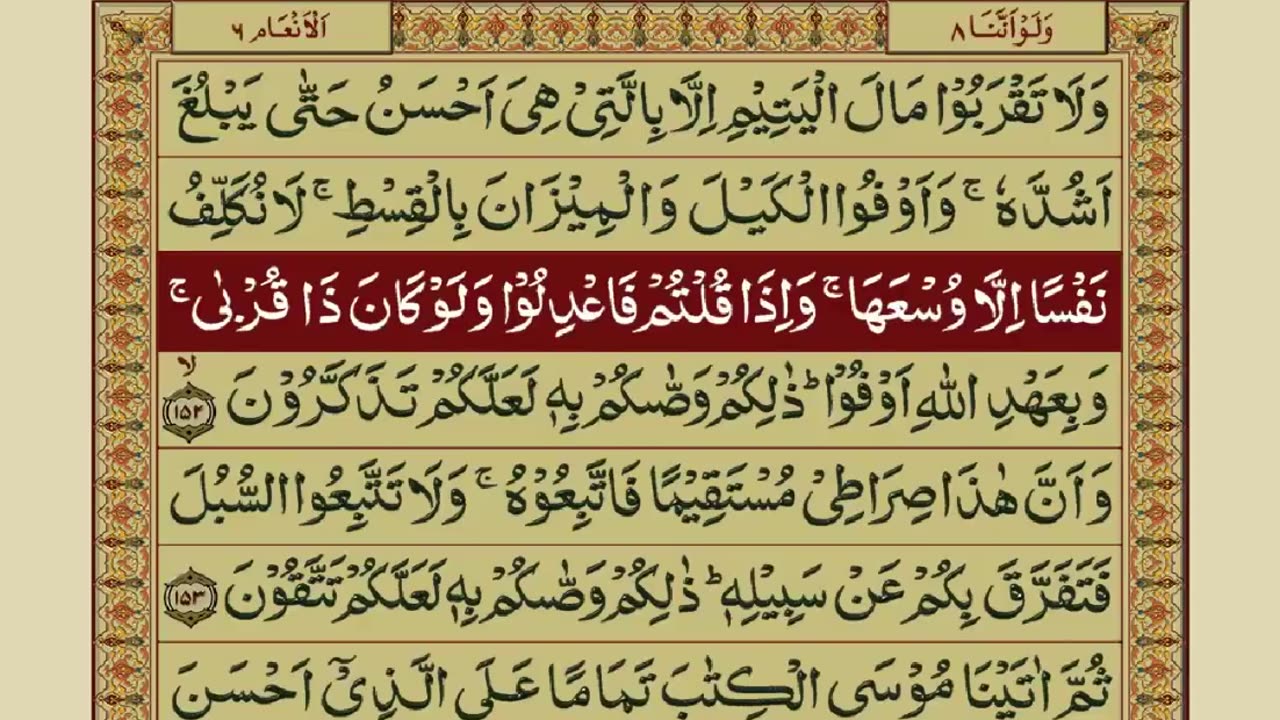 وَلَوْ اَنَّنَا ٨
اَلْاَنْعَام ٦
وَلَا تَقْرَبُوْا مَالَ الْيَتِيْمِ اِلَّا بِالَّتِيْ هِيَ اَحْسَنُ حَتّٰى يَبْلُغَ
اَشُدَّهٗ ۚ وَاَوْفُوا الْكَيْلَ وَالْمِيْزَانَ بِالْقِسْطِ ۚ لَا نُكَلِّفُ
نَفْسًا اِلَّا وُسْعَهَا ۚ وَاِذَا قُلْتُمْ فَاعْدِلُوْا وَلَوْ كَانَ ذَا قُرْبٰى ۚ
وَبِعَهْدِ اللّٰهِ اَوْفُوْا ؕ ذٰلِكُمْ وَصّٰىكُمْ بِهٖ لَعَلَّكُمْ تَذَكَّرُوْنَ ۙ ﴿١٥٢﴾
وَاَنَّ هٰذَا صِرَاطِيْ مُسْتَقِيْمًا فَاتَّبِعُوْهُ ۚ وَلَا تَتَّبِعُوا السُّبُلَ
فَتَفَرَّقَ بِكُمْ عَنْ سَبِيْلِهٖ ؕ ذٰلِكُمْ وَصّٰىكُمْ بِهٖ لَعَلَّكُمْ تَتَّقُوْنَ ﴿١٥٣﴾
ثُمَّ اٰتَيْنَا مُوْسَى الْكِتٰبَ تَمَامًا عَلَى الَّذِيْٓ اَحْسَنَ